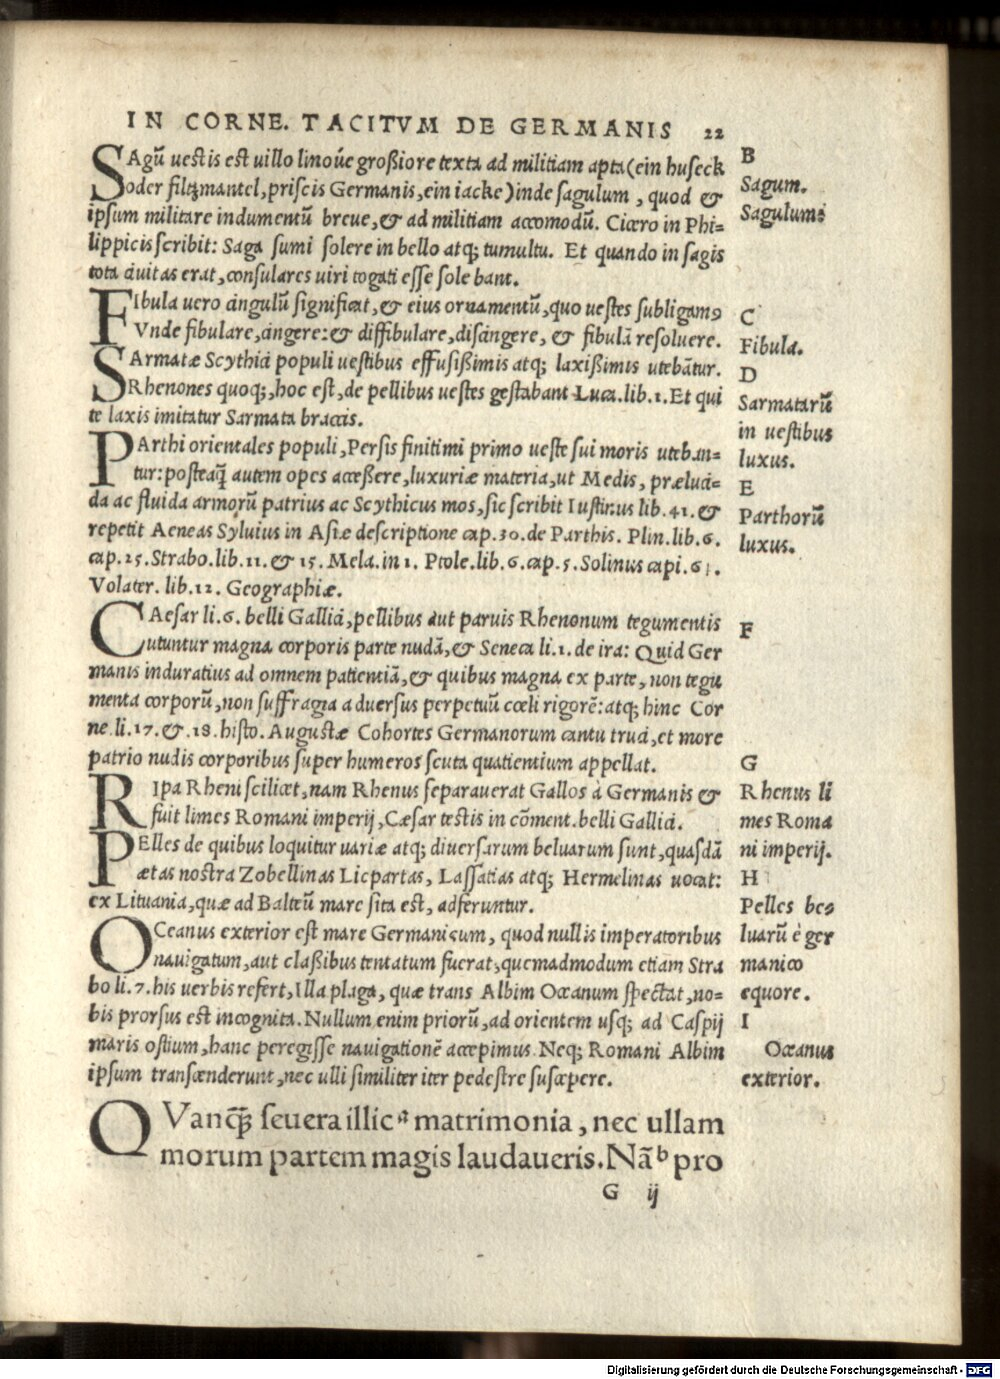 IN CORNE. TACITVM DE GERMANIS 22
SAgū uestis est uillo linoúe großiore texta ad militiam apta (ein huseck
oder filtzmantel, priscis Germanis, ein iacke) inde sagulum, quod &
ipsum militare indumentū breue, & ad militiam accomodū. Cicero in Phi=
lippicis scribit: Saga sumi solere in bello atq; tumultu. Et quando in sagis
tota ciuitas erat, consulares uiri togati esse solebant.
FIbula uero cingulū significat, & eius ornamentū, quo uestes subligamꝯ
Vnde fibulare, cingere: & diffibulare, discingere, & fibulā resoluere.
SArmatæ Scythici populi uestibus effusißimis atq; laxißimis utebātur.
Rhenones quoq;, hoc est, de pellibus uestes gestabant Luca. lib. 1. Et qui
te laxis imitatur Sarmata braccis.
PArthi orientales populi, Persis finitimi primo ueste sui moris uteban=
tur: posteaq̄ autem opes acceßere, luxuriæ materia, ut Medis, præluci=
da ac fluida armorū patrius ac Scythicus mos, sic scribit Iustinus lib. 41. &
repetit Aeneas Syluius in Asiæ descriptione cap. 30. de Parthis. Plin. lib. 6.
cap. 25. Strabo. lib. 11. & 15. Mela. in 1. Ptole. lib. 6. cap. 5. Solinus capi. 61.
Volater. lib. 12. Geographiæ.
CAesar li. 6. belli Gallici, pellibus aut paruis Rhenonum tegumentis
utuntur magna corporis parte nudā, & Seneca li. 1. de ira: Quid Ger
manis induratius ad omnem patientiā, & quibus magna ex parte, non tegu
menta corporū, non suffragia aduersus perpetuū cœli rigorē: atq; hinc Cor
ne. li. 17. & 18. histo. Augustæ Cohortes Germanorum cantu truci, et more
patrio nudis corporibus super humeros scuta quatientium appellat.
RIpa Rheni scilicet, nam Rhenus separauerat Gallos à Germanis &
fuit limes Romani imperij, Cæsar testis in cōment. belli Gallici.
PElles de quibus loquitur uariæ atq; diuersarum beluarum sunt, quasdā
ætas nostra Zobellinas Licpartas, Lassatias atq; Hermelinas uocat:
ex Lituania, quæ ad Balteū mare sita est, adferuntur.
OCeanus exterior est mare Germanicum, quod nullis imperatoribus
nauigatum, aut claßibus tentatum fuerat, quemadmodum etiam Stra
bo li. 7. his uerbis refert, Illa plaga, quæ trans Albim Oceanum spectat, no=
bis prorsus est incognita. Nullum enim priorū, ad orientem usq; ad Caspij
maris ostium, hanc peregisse nauigationē accepimus. Neq; Romani Albim
ipsum transcenderunt, nec ulli similiter iter pedestre suscepere.
QVanq̄; seuera illic a matrimonia, nec ullam
morum partem magis laudaueris. Nā b pro
G ij
B
Sagum.
Sagulum:
C
Fibula.
D
Sarmatarū
in uestibus
luxus.
E
Parthorū
luxus.
F
G
Rhenus li
mes Roma
ni imperij.
H
Pelles be=
luarū è ger
manico
equore.
I
Oceanus
exterior.
Digitalisierung gefördert durch die Deutsche Forschungsgemeinschaft - DFG